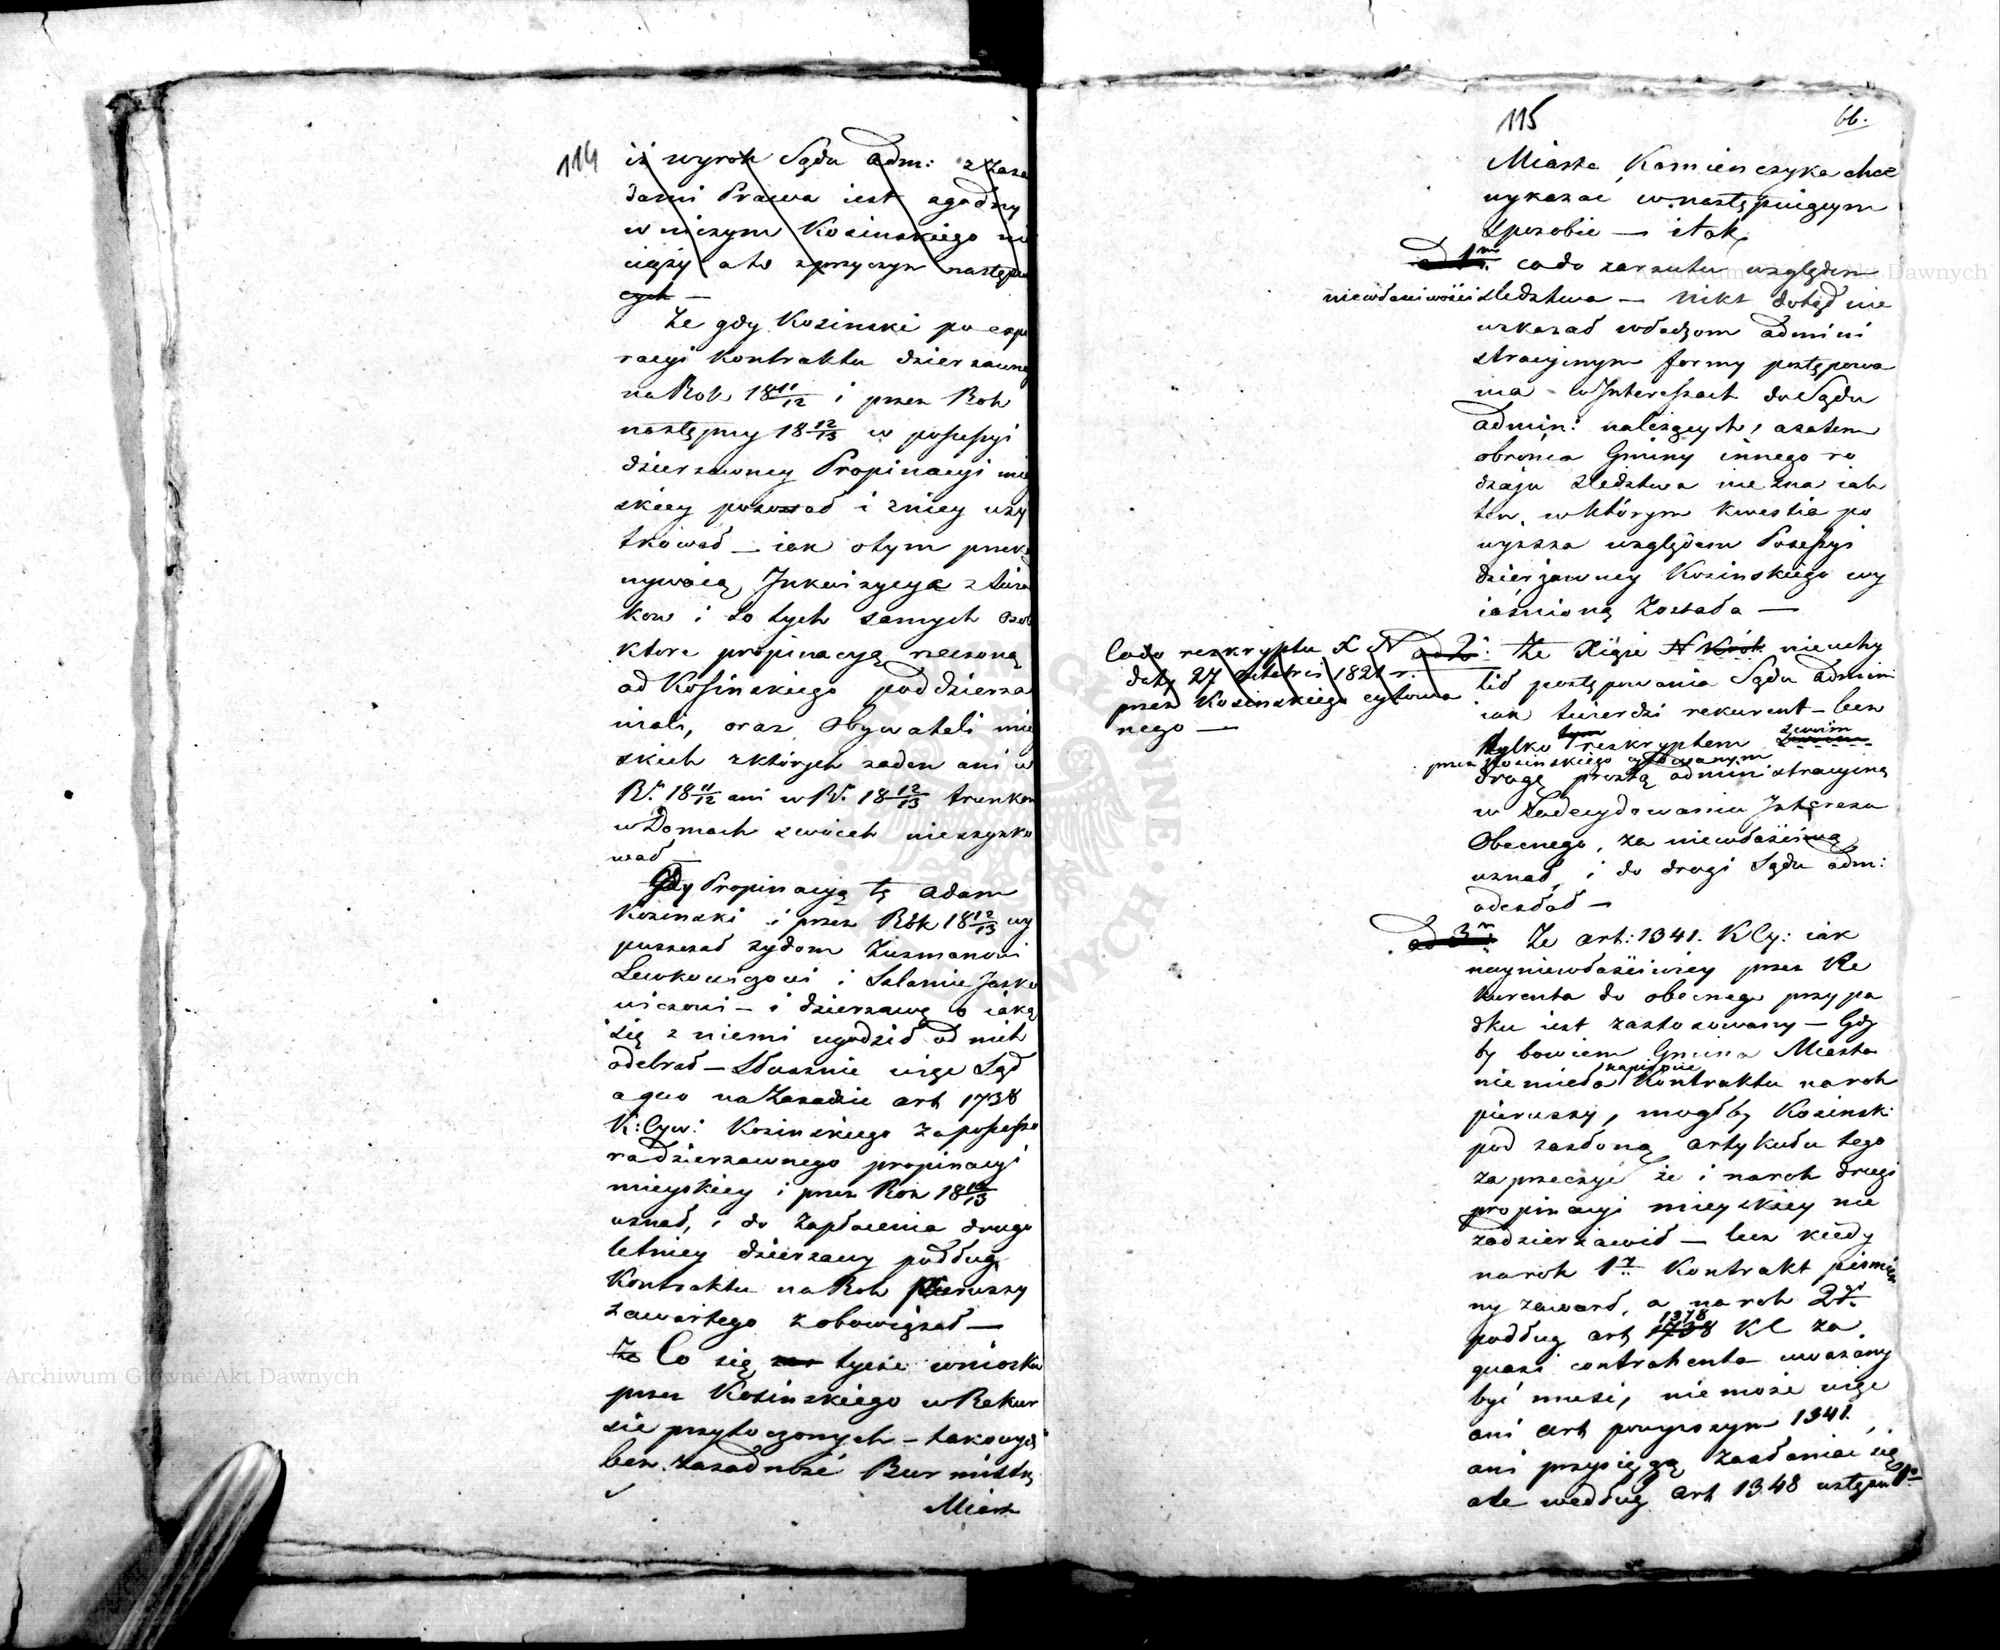 114
iż wyrok Sądu Adm: z zasa
dami Prawa iest zgodny
w niczym Kosinskiego nie
ciąży a to z przyczyn następu
cych —
Że gdy Kosinski po expi
racyi Kontraktu dzierzawneg
na Rok 18 11/12 i przez Rok
następny 18 12/13 w possessyi
dzierzawney Propinacyi miey
skiey pozostał i z niey uży
tkował — iak o tym przeko
nywaią Inkwizycye z świad
kow i to tych samych osob
ktore propinacyą rzeczoną
od Kosinskiego poddzierza
wiali, oraz Obywateli miey
skich z których żaden ani w
R. 18 11/12 ani w R. 18 12/13 trunkow
w Domach swoich nieszynko
wał —
Gdy Propinacyą tę Adam
Kosinski i przez Rok 18 12/13 wy
puszczał żydom Zusmanowi
Lewkowiczowi i Szlamie Jasko
wiczowi — i dzierzawę o iaką
się z niemi ugodził od nich
odebrał — Słusznie więc Sąd
a quo na Zasadzie art 1738
K: Cyw: Kosinskiego za possesso
ra dzierzawnego propinacyi
mieyskiey i przez Rok 18 12/13
uznał, i do zapłacenia drugo
letniey dzierzawy podług
Kontraktu na Rok pierwszy
zawartego zobowiązał —
Że Co się tycze wniosków
przez Kosinskiego w Rekur
sie przytoczonych — takowych
bez zasadność Burmistrz
Miast
115
66.
Miasta Kamienczyka chce
wykazać w następuiącym
sposobie — i tak
ad 1m co do zarzutu względem
niewłaściwości śledztwa — nikt dotąd nie
wskazał władzom admini
stracyinym formy postępowa
nia w Interessach do Sądu
Admin: należących, a zatem
obrońca Gminy innego ro
dzaju śledztwa nie zna iak
ten, w którym kwestia po
wyższa względem Possessyi
dzierżawney Kosinskiego wy
iaśnioną została —
Co do reskryptu X N
daty 27 1821 r.
przez Kosinskiego cytowa
nego —
ad 2o: Że Xiąże N nieuchy
lił postępowania Sądu Admin
iak twierdzi rekurent — lecz
tylko tym reskryptem swoim
przez Kosinskiego cytowanym
drogę prostą administracyiną
w Zadecydowaniu Interesu
Obecnego, za niewłaściwą
uznał, i do drogi Sądu adm:
odesłał —
ad 3m: Że art: 1341. K Cy: iak
nayniewłaściwiey przez Re
kurenta do obecnego przypa
dku iest zastosowany — Gdy
by bowiem Gmina Miasta
nie miała na piśmie Kontraktu na rok
pierwszy, mogłby Kosinski
pod zasłoną artykułu tego
zaprzeczyć że i na rok drugi
propinacyi mieyskiey nie
zadzierżawił — lecz kiedy
na rok 1y Kontrakt piśmien
ny zawarł, a na rok 2gi
podług art 1738 1378 KC za
quasi contrahenta uważany
być musi, nie może więc
ani art powyższym 1341.
ani przysięgą zasłaniać się
ale według art 1348 ustępu 1o
Archiwum Główne Akt Dawnych